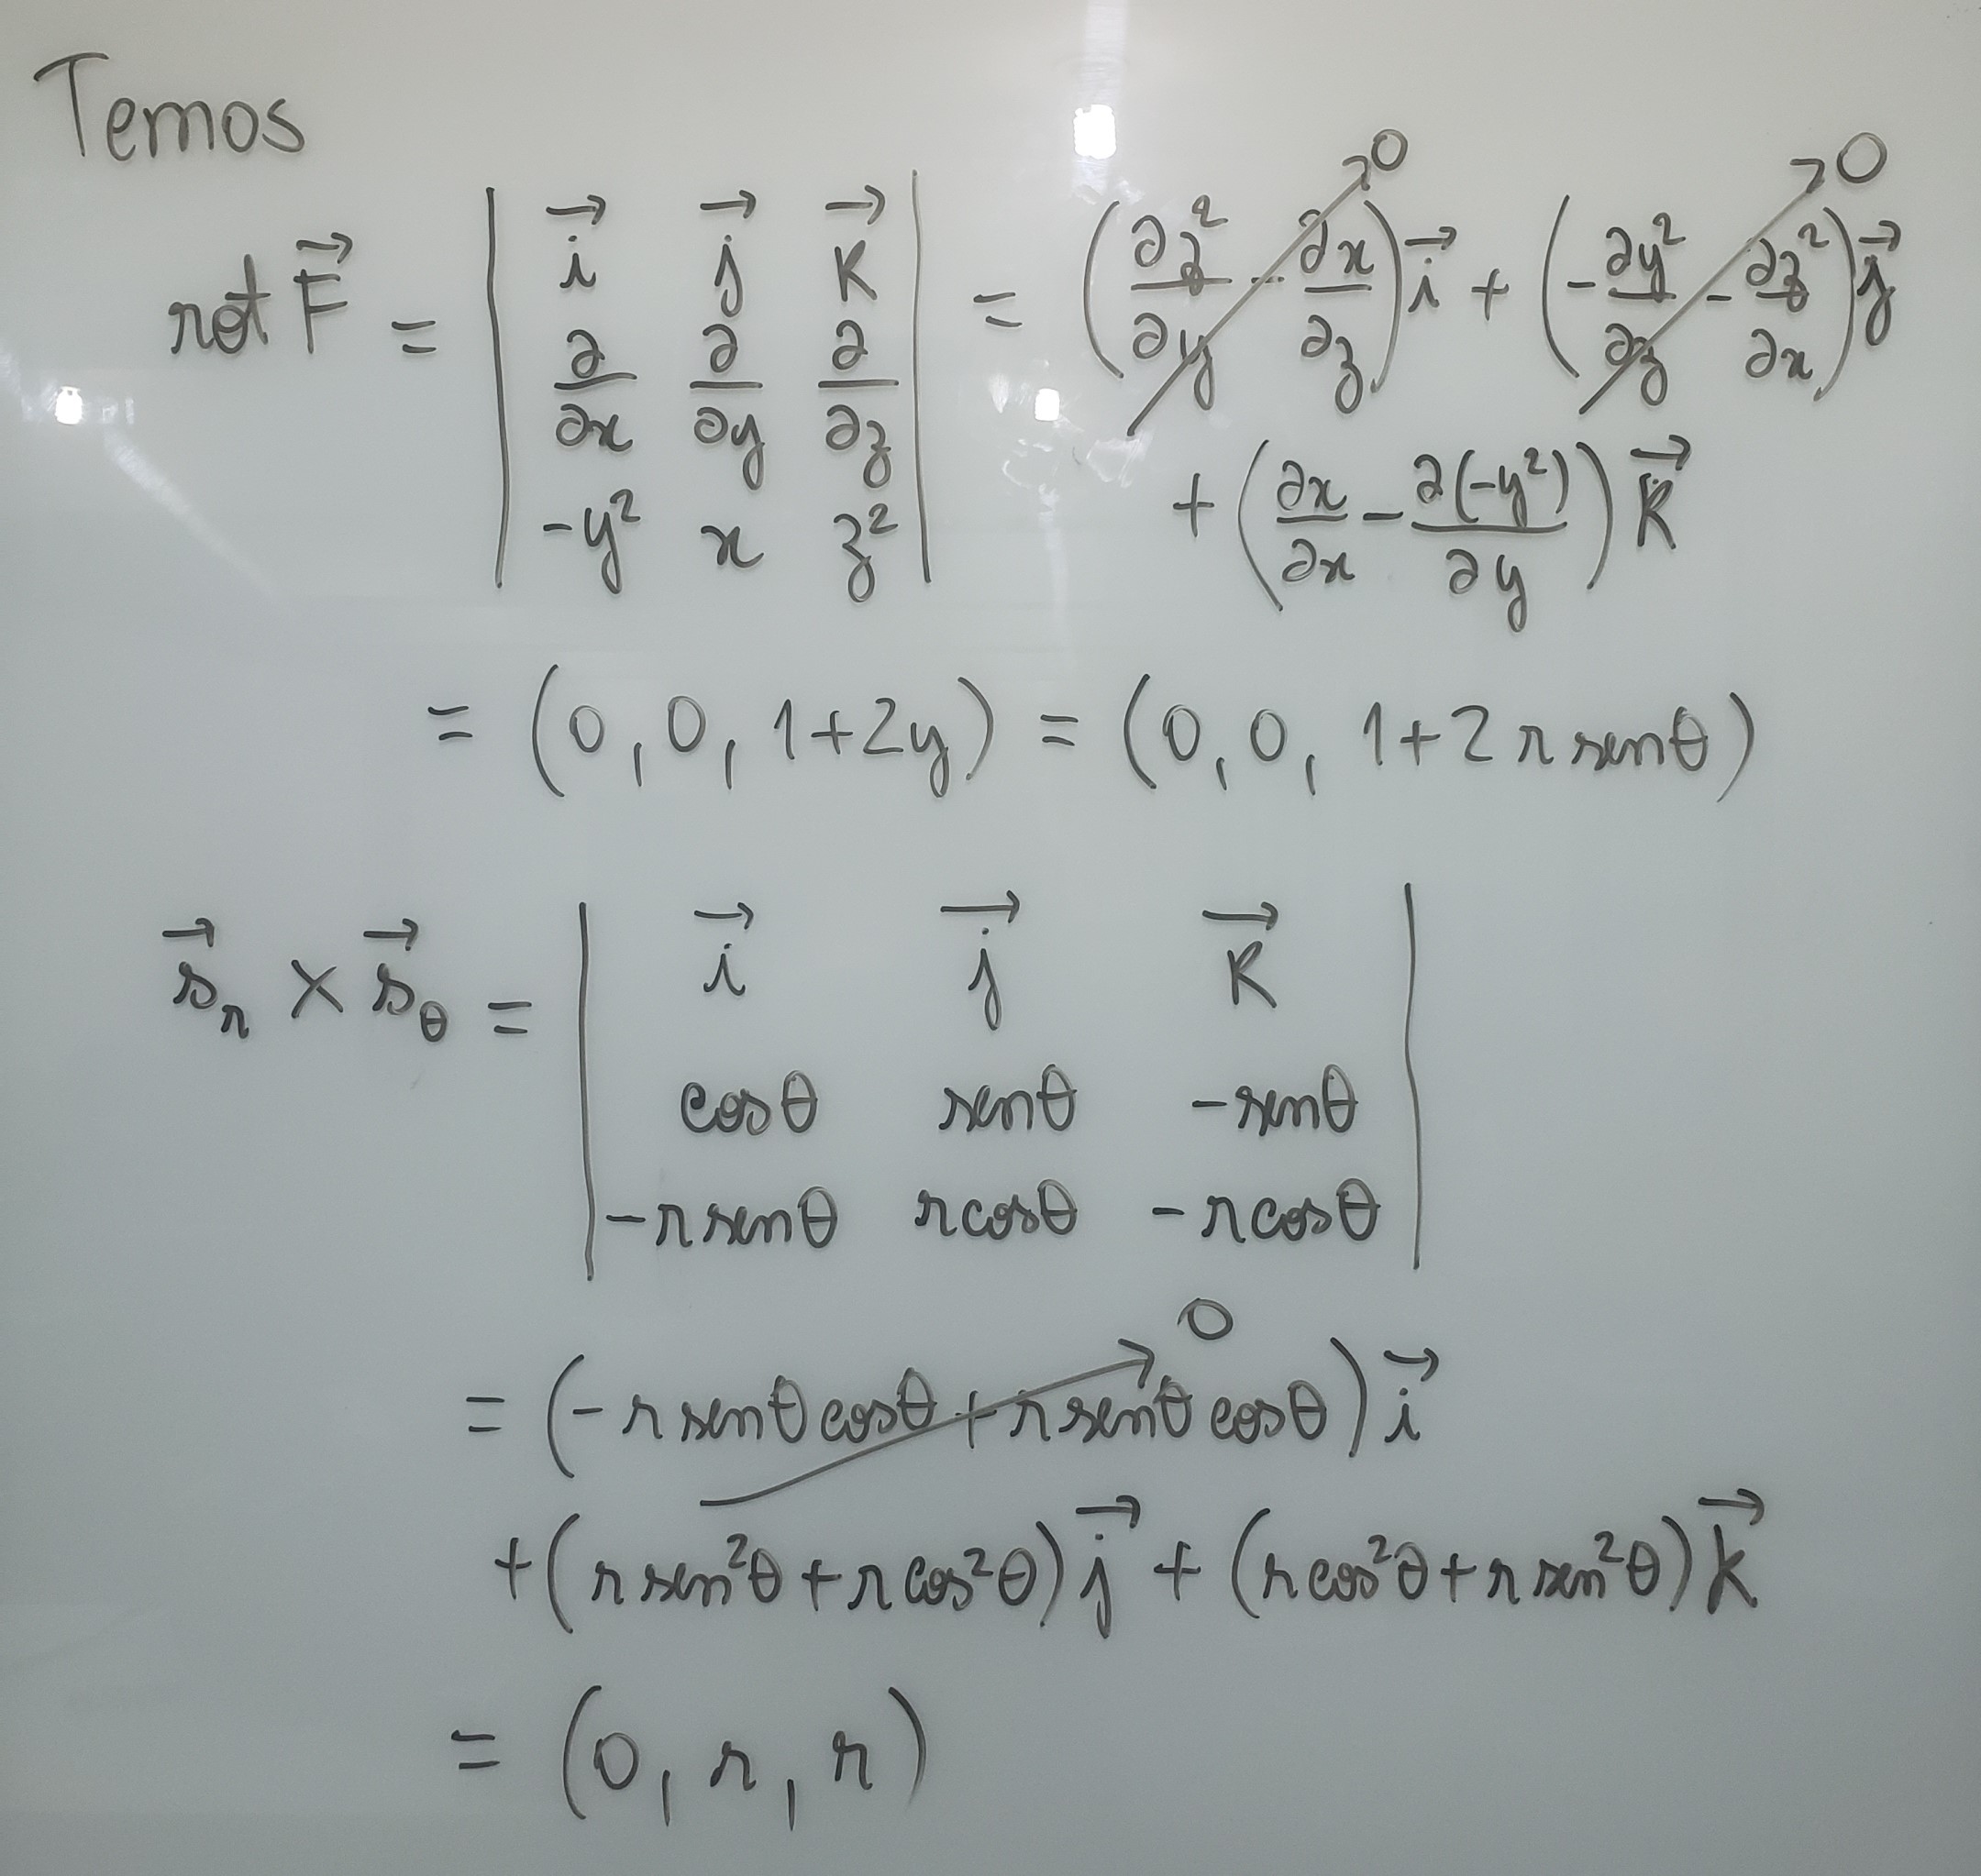 Temos
rot F⃗ = | i⃗ j⃗ k⃗ ; ∂/∂x ∂/∂y ∂/∂z ; -y² x z² | = (∂z²/∂y - ∂x/∂z)i⃗ →0 + (-∂y²/∂z - ∂z²/∂x)j⃗ →0
+ (∂x/∂x - ∂(-y²)/∂y)k⃗
= (0, 0, 1+2y) = (0, 0, 1+2r senθ)
s⃗_r × s⃗_θ = | i⃗ j⃗ k⃗ ; cosθ senθ -senθ ; -r senθ r cosθ -r cosθ |
= (-r senθ cosθ + r senθ cosθ)i⃗ →0
+ (r sen²θ + r cos²θ)j⃗ + (r cos²θ + r sen²θ)k⃗
= (0, r, r)